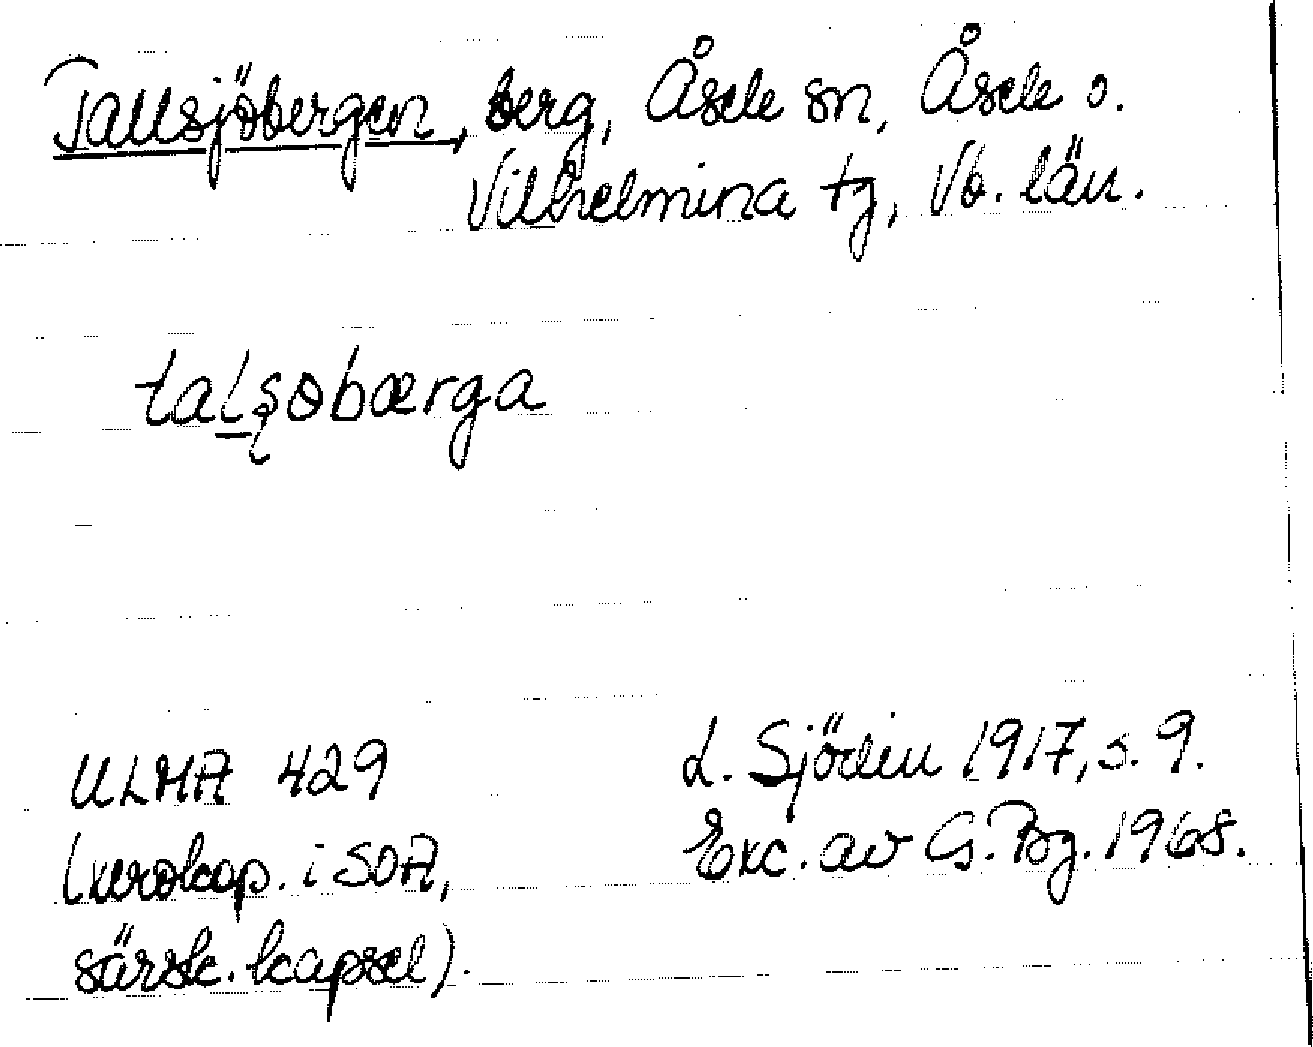 Tallsjöbergen, berg, Åsele sn, Åsele o.
Vilhelmina tg, Vb. län.
talʂobærga
ULMA 429
(xerokop. i SOA,
särsk. kapsel).
L. Sjödin 1917, s. 9.
Exc. av G. Bg. 1968.